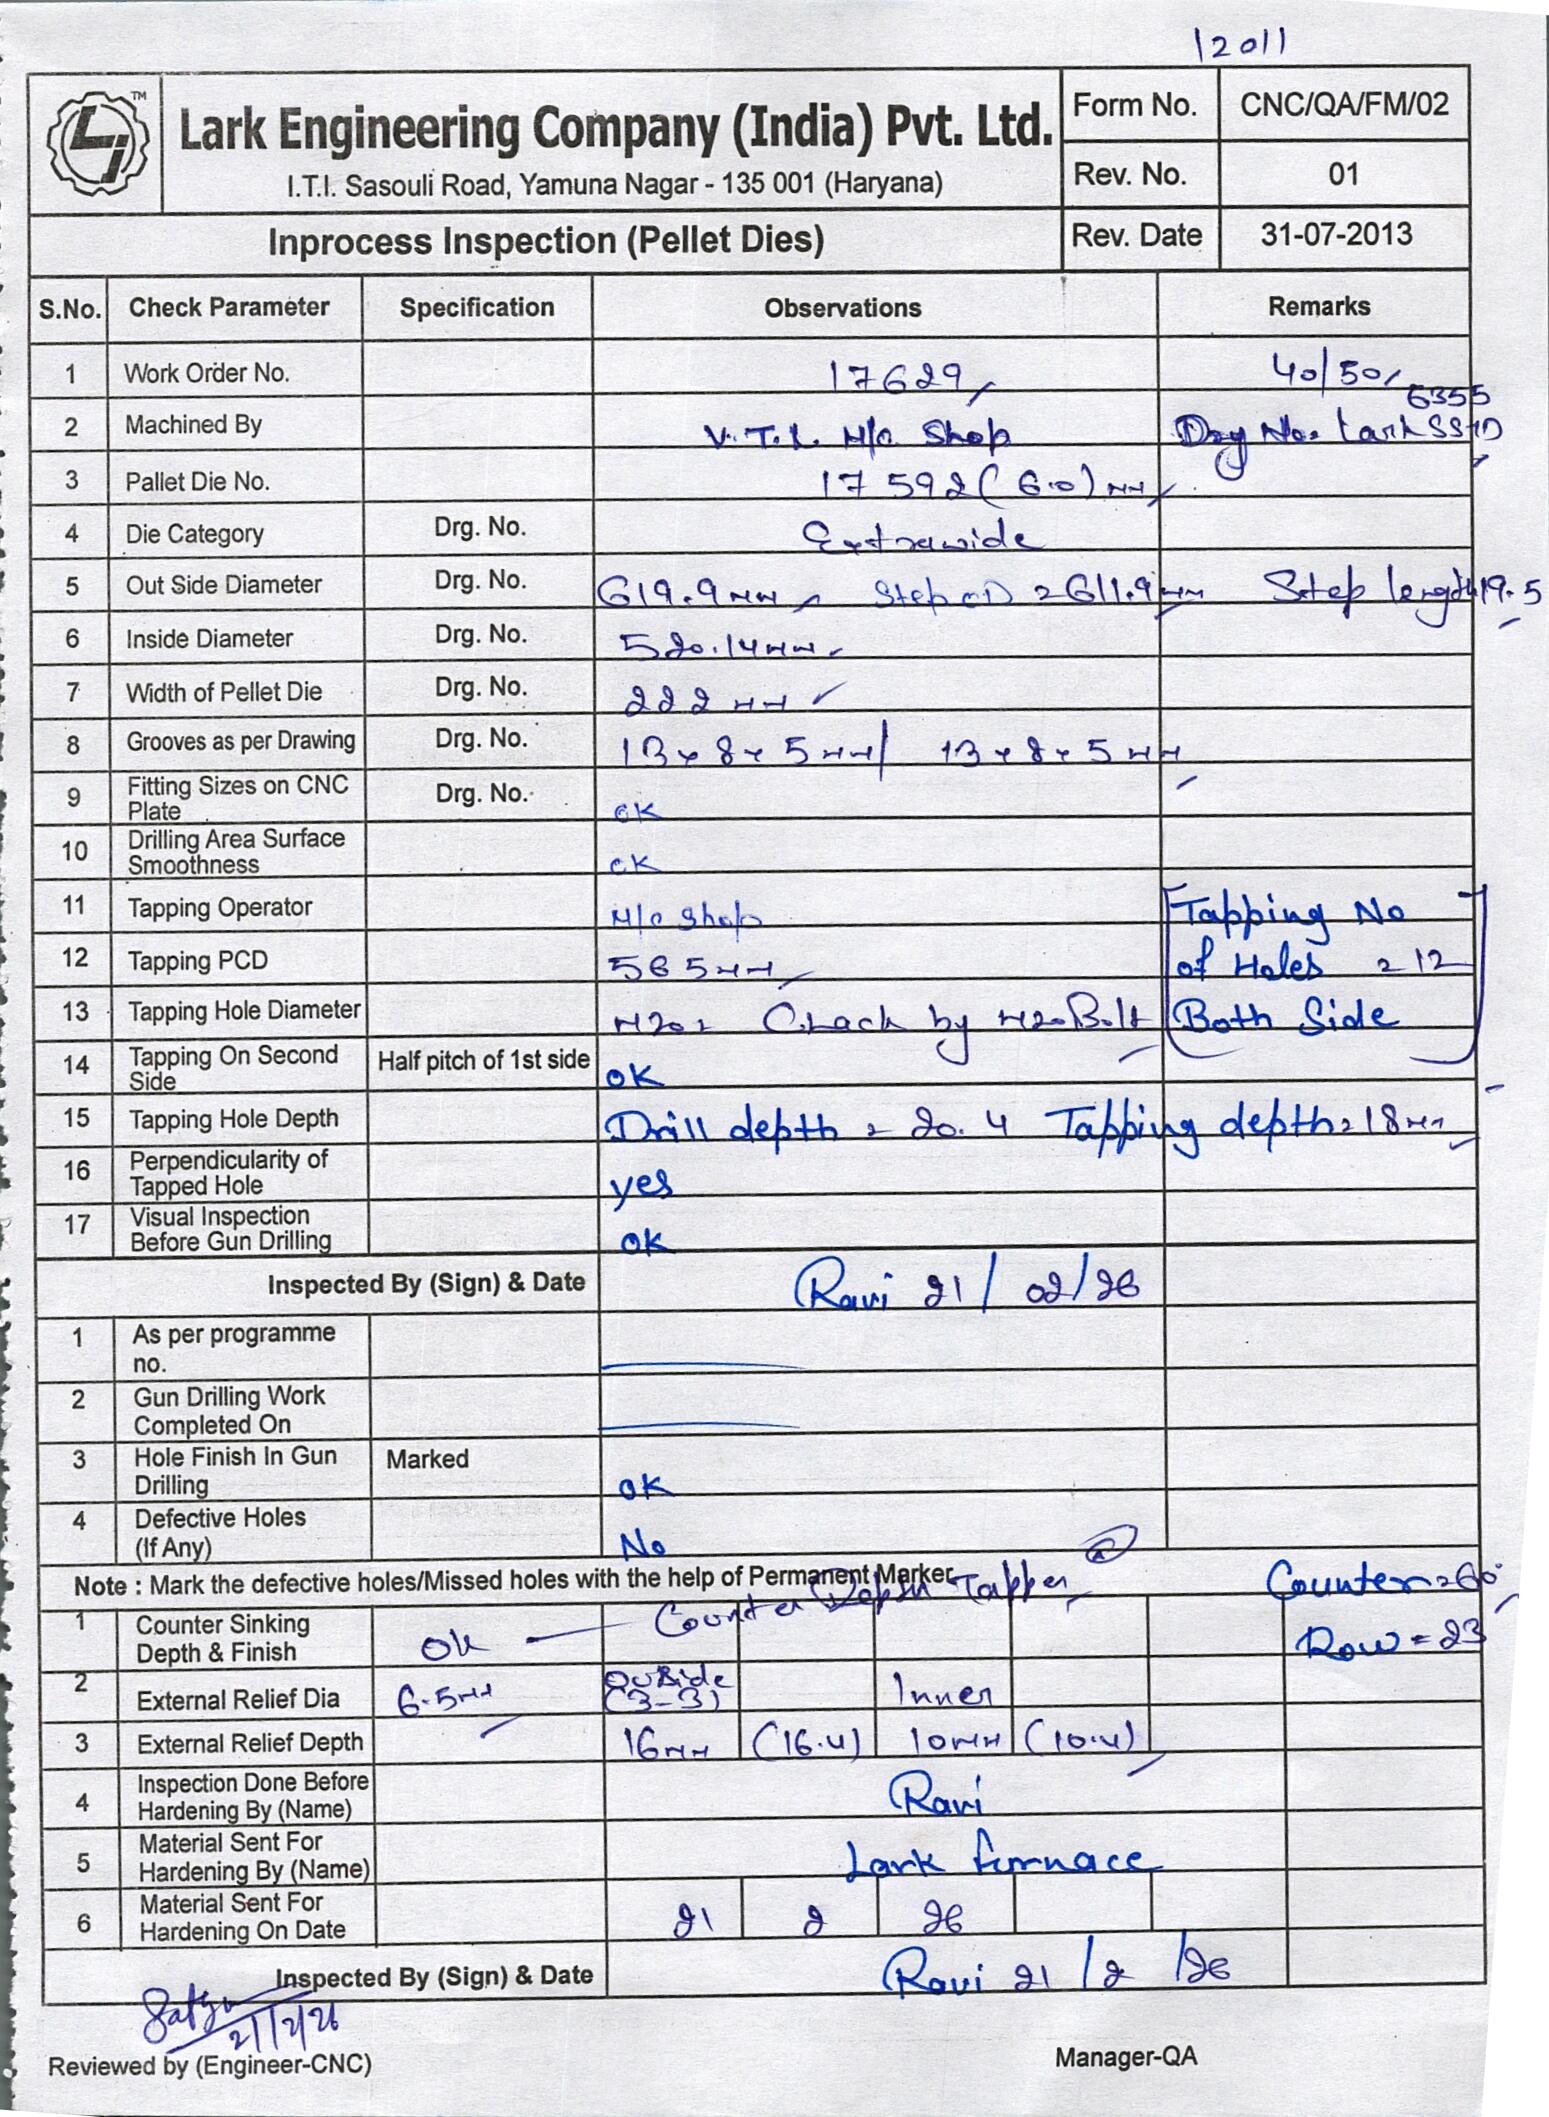 12011
TM
Lark Engineering Company (India) Pvt. Ltd.
I.T.I. Sasouli Road, Yamuna Nagar - 135 001 (Haryana)
Form No. CNC/QA/FM/02
Rev. No. 01
Inprocess Inspection (Pellet Dies)
Rev. Date 31-07-2013
S.No. Check Parameter Specification Observations Remarks
1 Work Order No. 17629 40/50
6355
2 Machined By V.T.L. M/c Shop Drg No. Lark SSHD
3 Pallet Die No. 17592 (6.0) mm
4 Die Category Drg. No. Extrawide
5 Out Side Diameter Drg. No. 619.9mm Step OD = 611.9mm Step length 19.5
6 Inside Diameter Drg. No. 520.14mm
7 Width of Pellet Die Drg. No. 222 mm ✓
8 Grooves as per Drawing Drg. No. 13x8x5mm/ 13x8x5mm
9 Fitting Sizes on CNC Plate Drg. No. OK
10 Drilling Area Surface Smoothness OK
11 Tapping Operator M/c Shop Tapping No
12 Tapping PCD 565mm of Holes = 12
13 Tapping Hole Diameter M20 = Chack by M20 Bolt Both Side
14 Tapping On Second Side Half pitch of 1st side OK
15 Tapping Hole Depth Drill depth = 20.4 Tapping depth = 18mm
16 Perpendicularity of Tapped Hole yes
17 Visual Inspection Before Gun Drilling OK
Inspected By (Sign) & Date Ravi 21/02/26
1 As per programme no.
2 Gun Drilling Work Completed On
3 Hole Finish In Gun Drilling Marked OK
4 Defective Holes (If Any) No
Note : Mark the defective holes/Missed holes with the help of Permanent Marker Counter = 60°
1 Counter Sinking Depth & Finish OK — Counter Depth Tapper Row = 23
2 External Relief Dia 6.5mm OutSide (3-3) Inner
3 External Relief Depth 16mm (16.4) 10mm (10.4)
4 Inspection Done Before Hardening By (Name) Ravi
5 Material Sent For Hardening By (Name) Lark furnace
6 Material Sent For Hardening On Date 21 2 26
Inspected By (Sign) & Date Ravi 21/2/26
21/2/26
Reviewed by (Engineer-CNC) Manager-QA